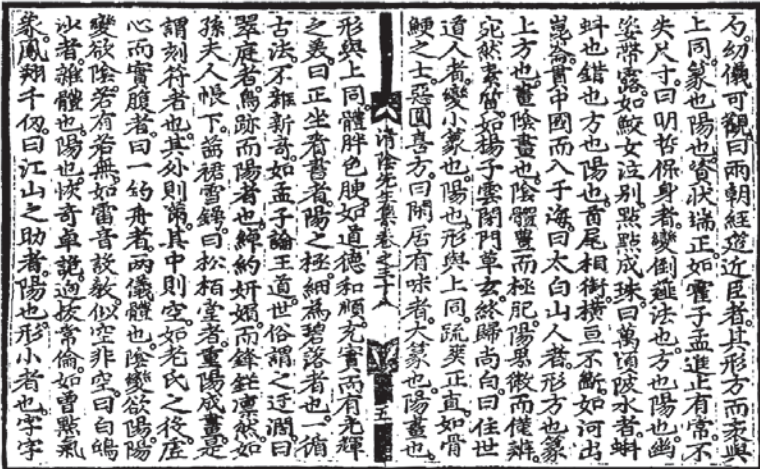 勺幼儀可觀曰兩朝經筵近臣者其形方而衷與
上同篆也陽也資狀端正如霍子孟進止有常不
失尺寸曰明哲保身者變倒薤法也方也陽也幽
姿帶露如鮫女泣別點點成珠曰萬頃陂水者蝌
蚪也錯也方也陽也首尾相銜橫亘不斷如河出
崑崙貫中國而入于海曰太白山人者形方也篆
上方也畫陰畫也陰體豊而極肥陽界微而僅辨
宛然素質如楊子雲閉門草玄終歸尚白曰住世
道人者變小篆也陽也形與上同疏爽正直如骨
鯁之士惡圓喜方曰閑居有味者大篆也陽畫也
清陰先生集卷之三十八 五
形與上同體胖色腴如道德和順充實而有光輝
之美曰正坐者舊者陽之極細為碧落者也一循
古法不雜新奇如孟子論王道世俗謂之迂濶曰
翠庭者鳥跡而陽者也綽約姸媚而鋒鋩凛然如
孫夫人帳下裙雪鍔曰松栢堂者重陽成畫是
謂刻符者也其外則滿其中則空如老氏之後虛
心而實腹者曰一釣舟者兩儀體也陰變欲陽陽
變欲陰若有若無如雷音說敎似空非空曰白鴎
沙者雜體也陽也恢奇卓詭逈拔常倫如曾點氣
象鳳翔千仞曰江山之助者陽也形小者也字字